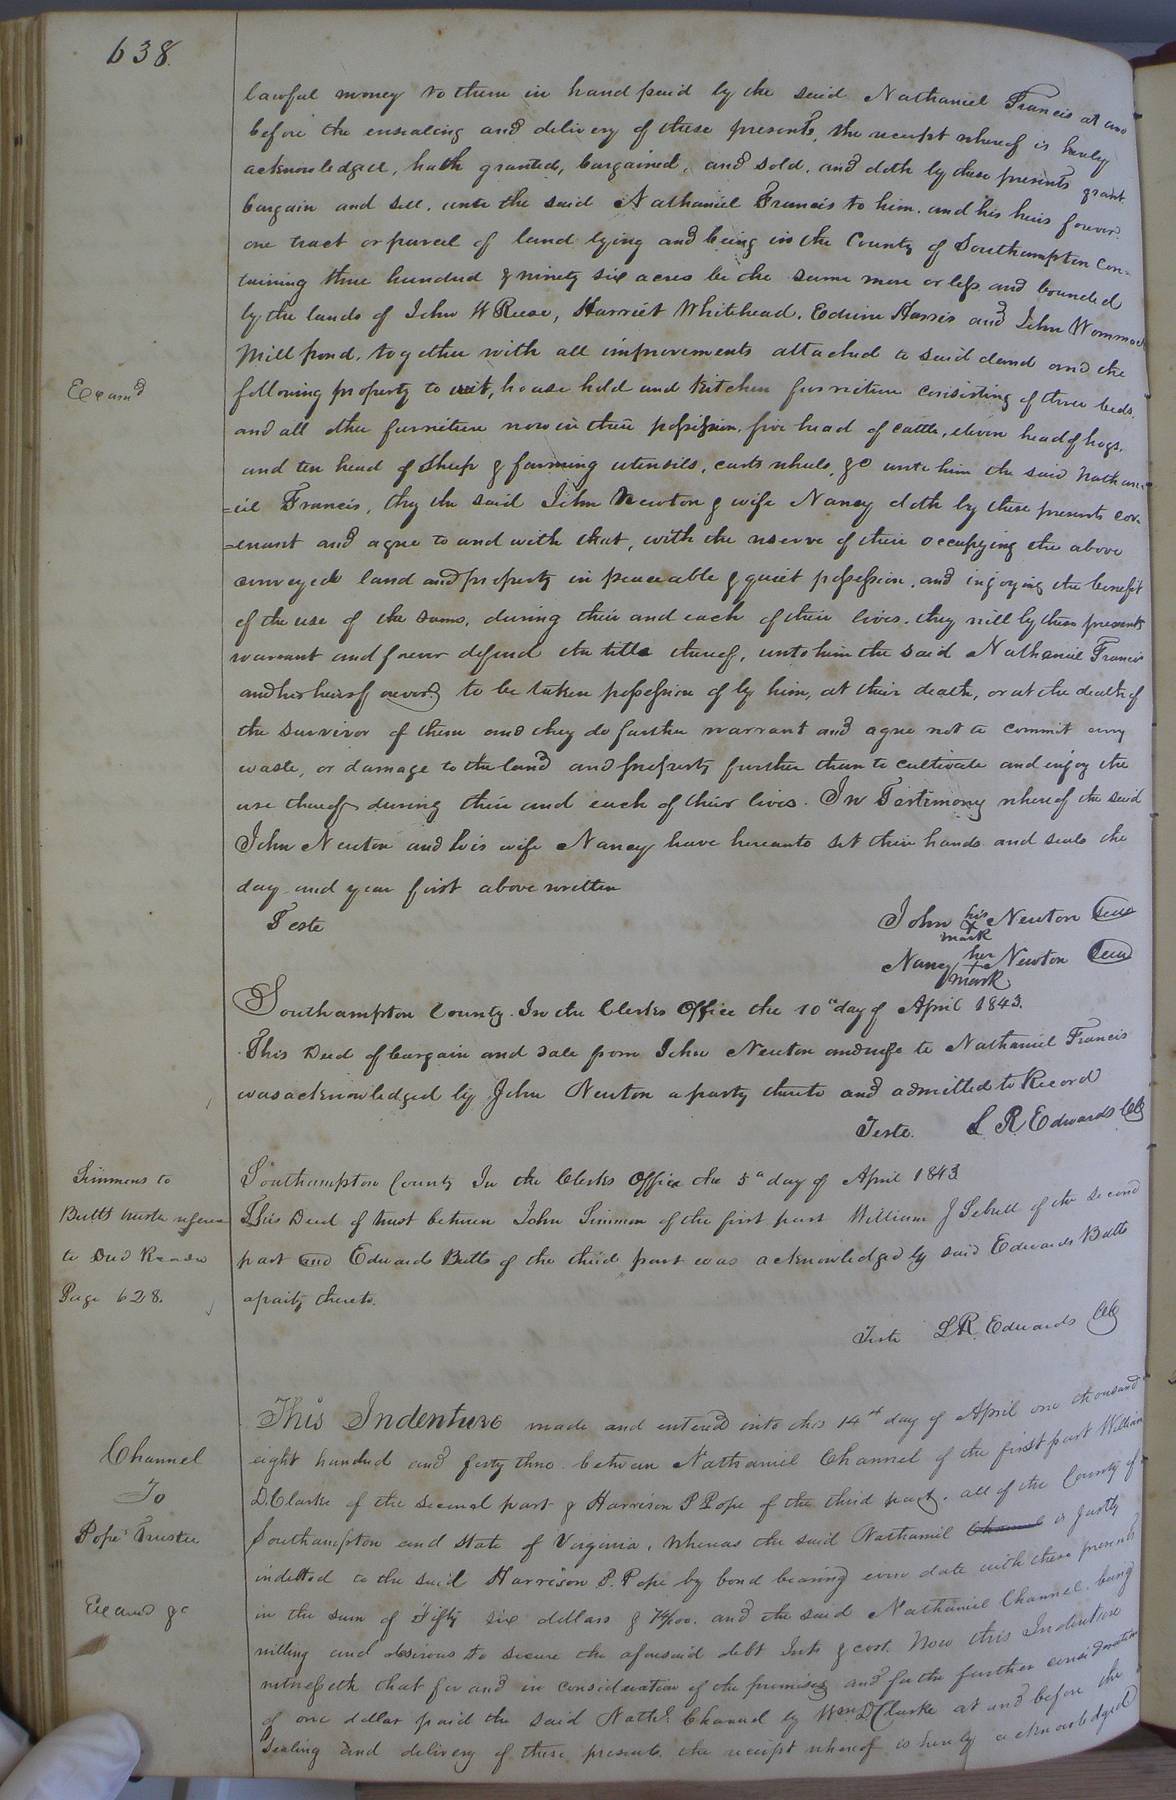 638.
lawful money to them in hand paid by the said Nathaniel Francis at and
before the ensealing and delivery of these presents, the receipt whereof is hereby
acknowledged, hath granted, bargained, and sold, and doth by these presents grant
bargain and sell, unto the said Nathaniel Francis to him, and his heirs forever
one tract or parcel of land lying and being in the County of Southampton con-
taining three hundred & ninety six acres be the same more or less and bounded
by the lands of John W Reese, Harriet Whitehead, Edwin Harris and John Wommack
Mill pond, together with all improvements attached to said land and the
Examd
following property to wit, house hold and Kitchen furniture consisting of three beds,
and all other furniture now in their possession, five head of cattle, eleven head of hogs,
and ten head of sheep & farming utensils, carts wheels, &c unto him the said Nathan-
=iel Francis, they the said John Newton & wife Nancy doth by these presents cov-
=enant and agree to and with that, with the reserve of their occupying the above
conveyed land and property in peaceable & quiet possession, and injoying the benefit
of the use of the same, during their and each of their lives, they will by these presents
warrant and forever defend the title thereof, unto him the said Nathaniel Francis
and his heirs forever, to be taken possession of by him, at their death, or at the death of
the survivor of them and they do further warrant and agree not to commit any
waste, or damage to the land and property further than to cultivate and enjoy the
use thereof during their and each of their lives. In Testimony whereof the said
John Newton and his wife Nancy have hereunto set their hands and seals the
day and year first above written
Teste
John his X mark Newton Seal
Nancy her + mark Newton Seal
Southampton County. In the Clerks Office the 10th day of April 1843.
This Deed of bargain and sale from John Newton and wife to Nathaniel Francis
was acknowledged by John Newton a party thereto and admitted to Record
Teste. L R Edwards CC
Simmons to
Butts trustee
to Deed
Page 628.
Southampton County In the Clerks Office the 5th day of April 1843
This Deed of trust between John Simmon of the first part William J Sebrell of the second
part and Edwards Butts of the third part was acknowledged by said Edwards Butts
a party thereto.
Teste L R Edwards CC
Channel
To
Pope's Trustee
Examd &c
This Indenture made and entered into this 14th day of April one thousand
eight hundred and forty three between Nathaniel Channel of the first part William
D. Clarke of the second part & Harrison P Pope of the third part, all of the County of
Southampton and State of Virginia, Whereas the said Nathaniel Channel is justly
indetted to the said Harrison P. Pope by bond bearing even date with these presents
in the sum of Fifty six dollars & 74/100. and the said Nathaniel Channel, being
willing and desirous to secure the aforesaid debt Ints & cost. Now this Indenture
witnesseth that for and in consideration of the premises and for the further consideration
of one dollar paid the said Nathl. Channel by Wm D Clarke at and before the
sealing and delivery of these presents the receipt whereof is hereby acknowledged